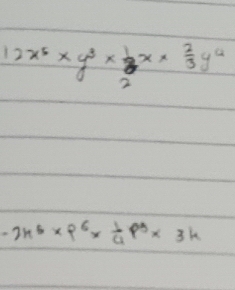 12x⁵ × y³ × 1/2 x × 2/3 y⁴
-2h⁵ × p⁶ × 1/4 p⁹ × 3h